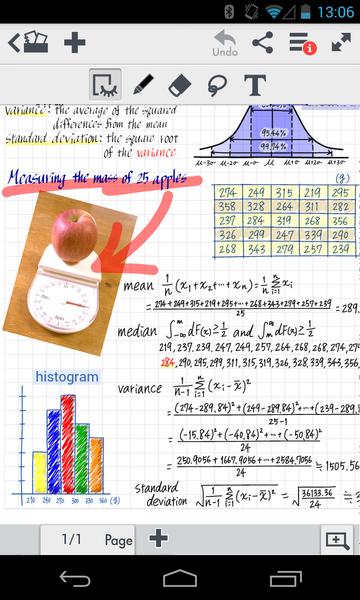 13:06
Undo
T
variance: the average of the squared
differences from the mean
standard deviation: the square root
of the variance
95.44%
99.74%
μ-3σ μ-2σ μ-σ μ μ+σ μ+2σ μ+3σ
Measuring the mass of 25 apples
(g)
274 249 315 219 295
358 328 264 311 282
237 284 319 268 356
326 299 247 339 290
268 343 279 257 239
mean 1/n (x₁+x₂+⋯+xₙ)=1/n Σⁿᵢ₌₁ xᵢ
= 274+249+315+219+295+⋯+268+343+279+257+239 / 25 = 289.
median ∫₋∞ᵐ dF(x)≥1/2 and ∫ₘ∞ dF(x)≥1/2
219, 237, 239, 247, 249, 257, 264, 268, 268, 274, 27
284, 290, 295, 299, 311, 315, 319, 326, 328, 339, 343, 356,
variance 1/n-1 Σⁿᵢ₌₁ (xᵢ-x̄)²
= (274-289.84)²+(249-289.84)²+⋯+(239-289.8 / 25-1
= (-15.84)²+(-40.84)²+⋯+(-50.84)² / 24
= 250.9056+1667.9056+⋯+2584.7056 / 24 ≒ 1505.56
standard deviation √1/n-1 Σⁿᵢ₌₁ (xᵢ-x̄)² = √36133.36/24 ≒
histogram
210 240 270 300 330 360 (g)
1/1 Page